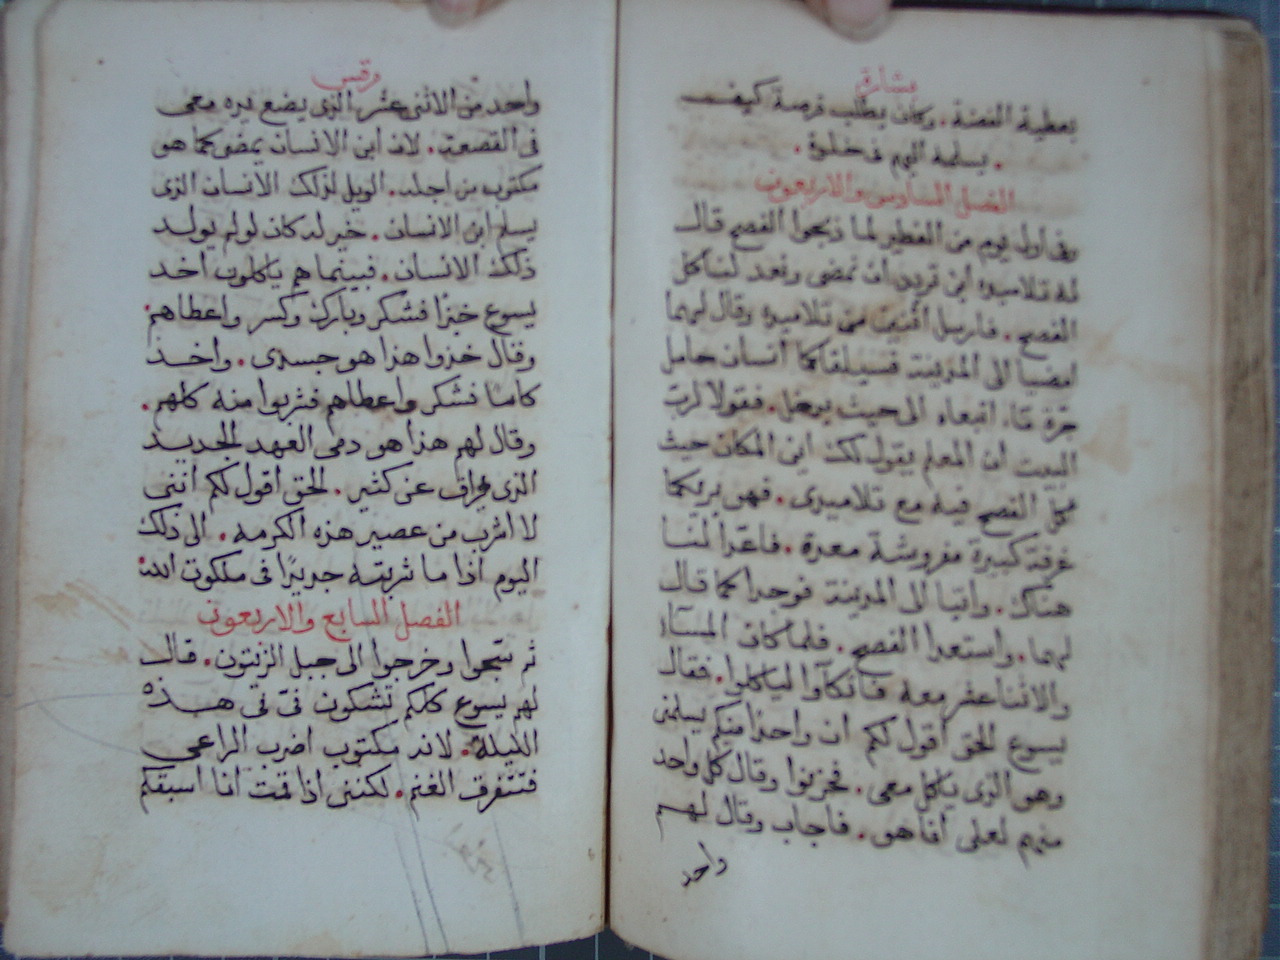 بشارة
بعطية الفضة. وكان يطلب فرصة كيف
. يسلمه اليهم فى خلوة .
الفصل السادس والاربعون
وفى اول يوم من الفطير لما ذبحوا الفصح قال
له تلاميده اين تريد ان نمضى ونعد لتاكل
الفصح. فارسل اثنين من تلاميده وقال لهما
امضيا الى المدينة فسيلقاكما انسان حامل
جرّة ما. اتبعاه الى حيث يدخل. فقولا لرب
البيت ان المعلم يقول لك اين المكان حيث
اكل الفصح فيه مع تلاميدى. فهو يريكما
غرفة كبيرة مفروشة معدة. فاعدّا لنا
هناك. واتيا الى المدينة فوجدا كما قال
لهما. واستعدا الفصح. فلما كان المسآء
والاثناعشر معه فاتكآوا لياكلوا. فقال
يسوع الحق اقول لكم ان واحدا منكم يسلمنى
وهو الذى ياكل معى. فحزنوا وقال كل واحد
منهم لعلى انا هو. فاجاب وقال لهم
واحد
رقس
واحد من الاثنى عشر الذى يضع يده معى
فى القصعة. لان ابن الانسان يمضى كما هو
مكتوب من اجله. الويل لذلك الانسان الذى
يسلم ابن الانسان. خير له كان لو لم يولد
ذلك الانسان. فبينما هم ياكلون اخد
يسوع خبزا فشكر وبارك وكسر واعطاهم.
وقال خذوا هذا هو جسدى. واخذ
كاسا فشكر واعطاهم فشربوا منه كلهم.
وقال لهم هذا هو دمى العهد الجديد
الذى يهراق عن كثير. الحق اقول لكم اننى
لا اشرب من عصير هذه الكرمه. الى ذلك
اليوم اذا ما شربته جديدا فى ملكوت الله.
الفصل السابع والاربعون
ثم سبحوا وخرجوا الى جبل الزيتون. قال
لهم يسوع كلكم تشكون فىّ فى هذه
الليلة. لانه مكتوب اضرب الراعى
فتتفرق الغنم. لكننى اذا قمت انا اسبقكم